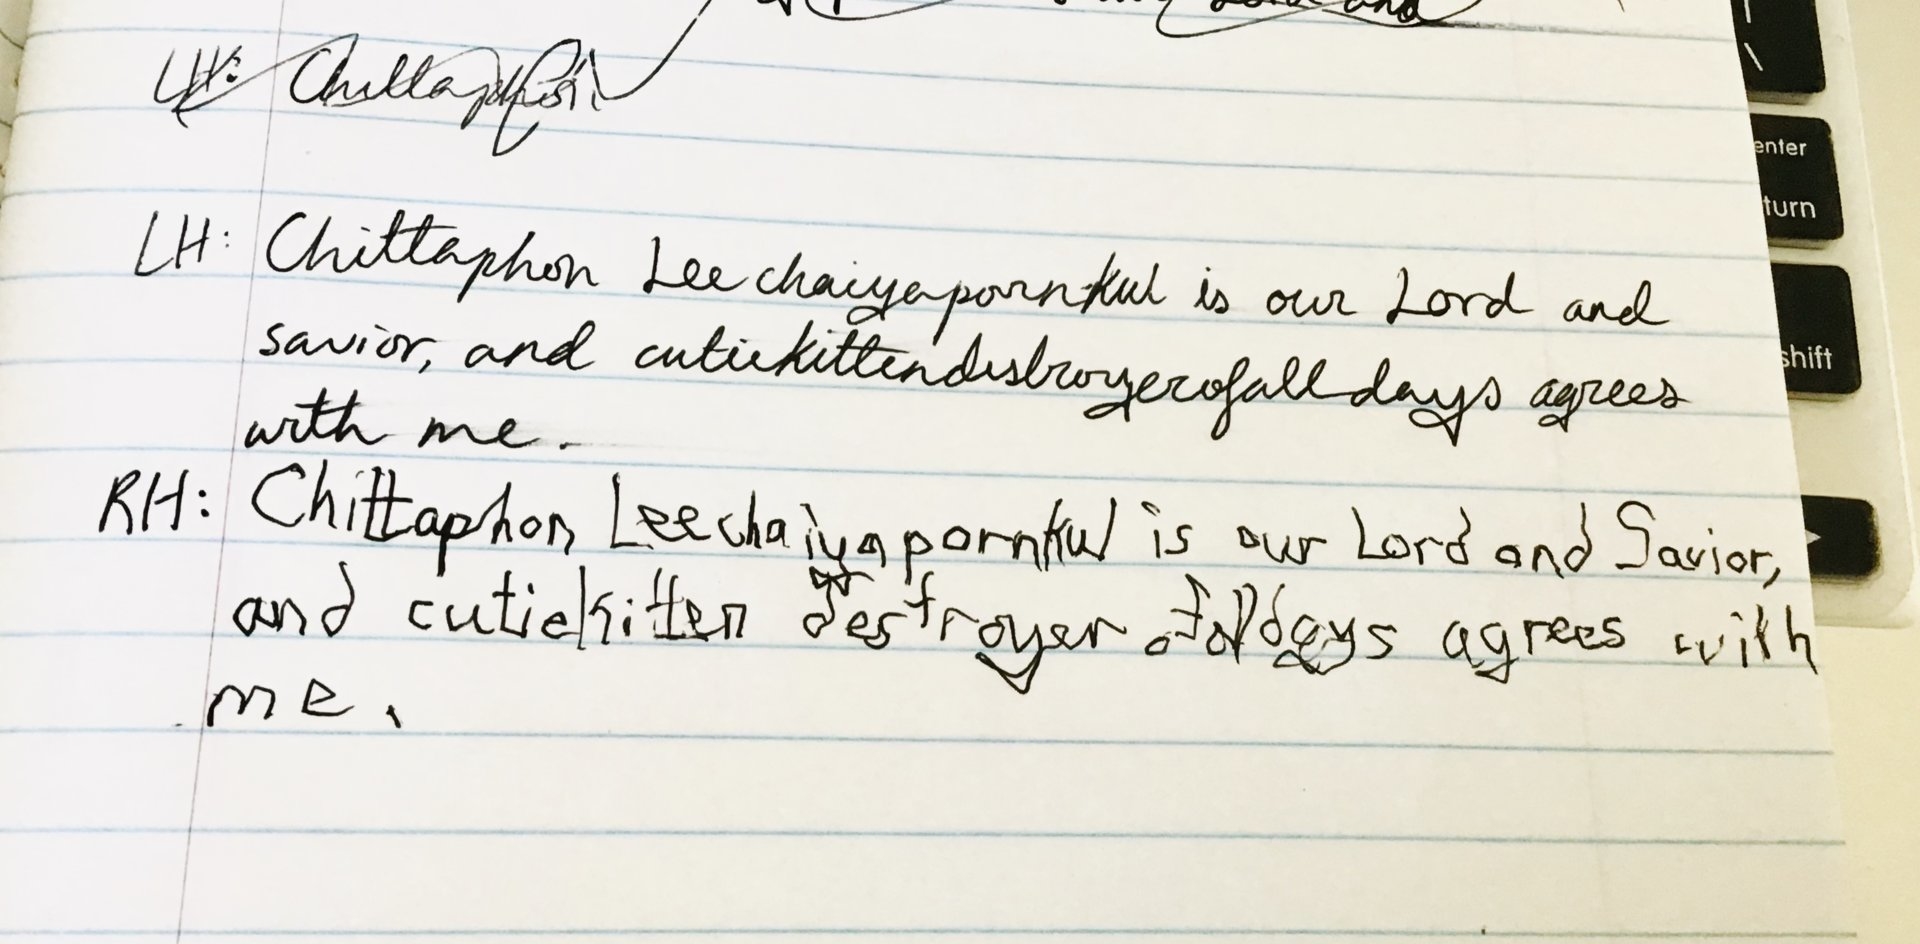 Lord and
LH: Chittaphon
LH: Chittaphon Leechaiyapornkul is our Lord and
savior, and cutiekittendestroyerofalldays agrees
with me.
RH: Chittaphon Leechaiyapornkul is our Lord and Savior,
and cutiekitten destroyer ofalldays agrees with
me.
enter
turn
shift